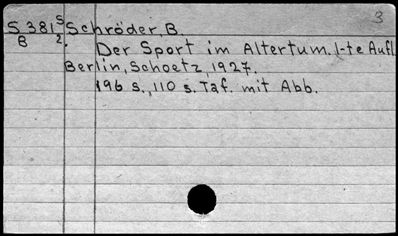 3
S 381 S Schröder, B.
B 2. Der Sport im Altertum. 1-te Aufl
Berlin, Schoetz, 1927.
196 S., 110 S. Taf. mit Abb.